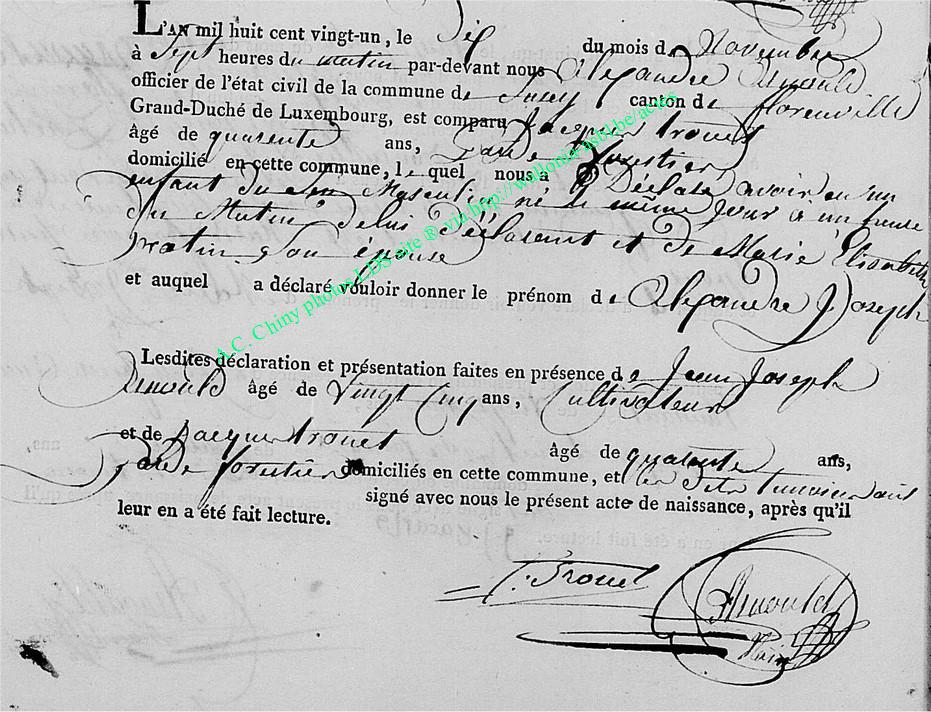 L'AN mil huit cent vingt-un, le Dix du mois de Novembre
à Sept heures du matin par-devant nous Alexandre Arnould
officier de l'état civil de la commune de canton de florenville
Grand-Duché de Luxembourg, est comparu Jacques trouet
âgé de quarente ans, Garde forestier
domicilié en cette commune, lequel nous a Déclaré avoir eu un
enfant du Sex Masculin né le même jour à un heure
du Matin delui déclarant et de Marie Elisabeth
son épouse
et auquel a déclaré vouloir donner le prénom de Alexandre Joseph
Lesdites déclaration et présentation faites en présence de Jean Joseph
Arnould âgé de Vingt Cinq ans, Cultivateur
et de Jacques trouet âgé de quarante ans,
garde forestier domiciliés en cette commune, et les dits temoins ont
signé avec nous le présent acte de naissance, après qu'il
leur en a été fait lecture.
J. Trouet Arnould
Maire
A.C. Chiny photos LDS site ® via http://wallonia.asbl.be/actes